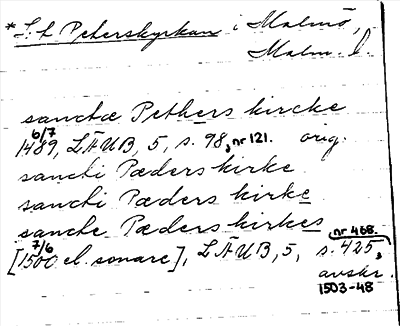 * S:t Peterskyrkan i Malmö,
Malm. l.
sanctæ Pethers kircke
6/7
1489, LÄUB, 5, s. 98, nr 121. orig.
sancti Pæders kirke
sancti Pæders kirke
sancte Pæders kirkes
[7/6 1500 el. senare], LÄUB, 5, s. 425, nr 468.
avskr.
1503-48